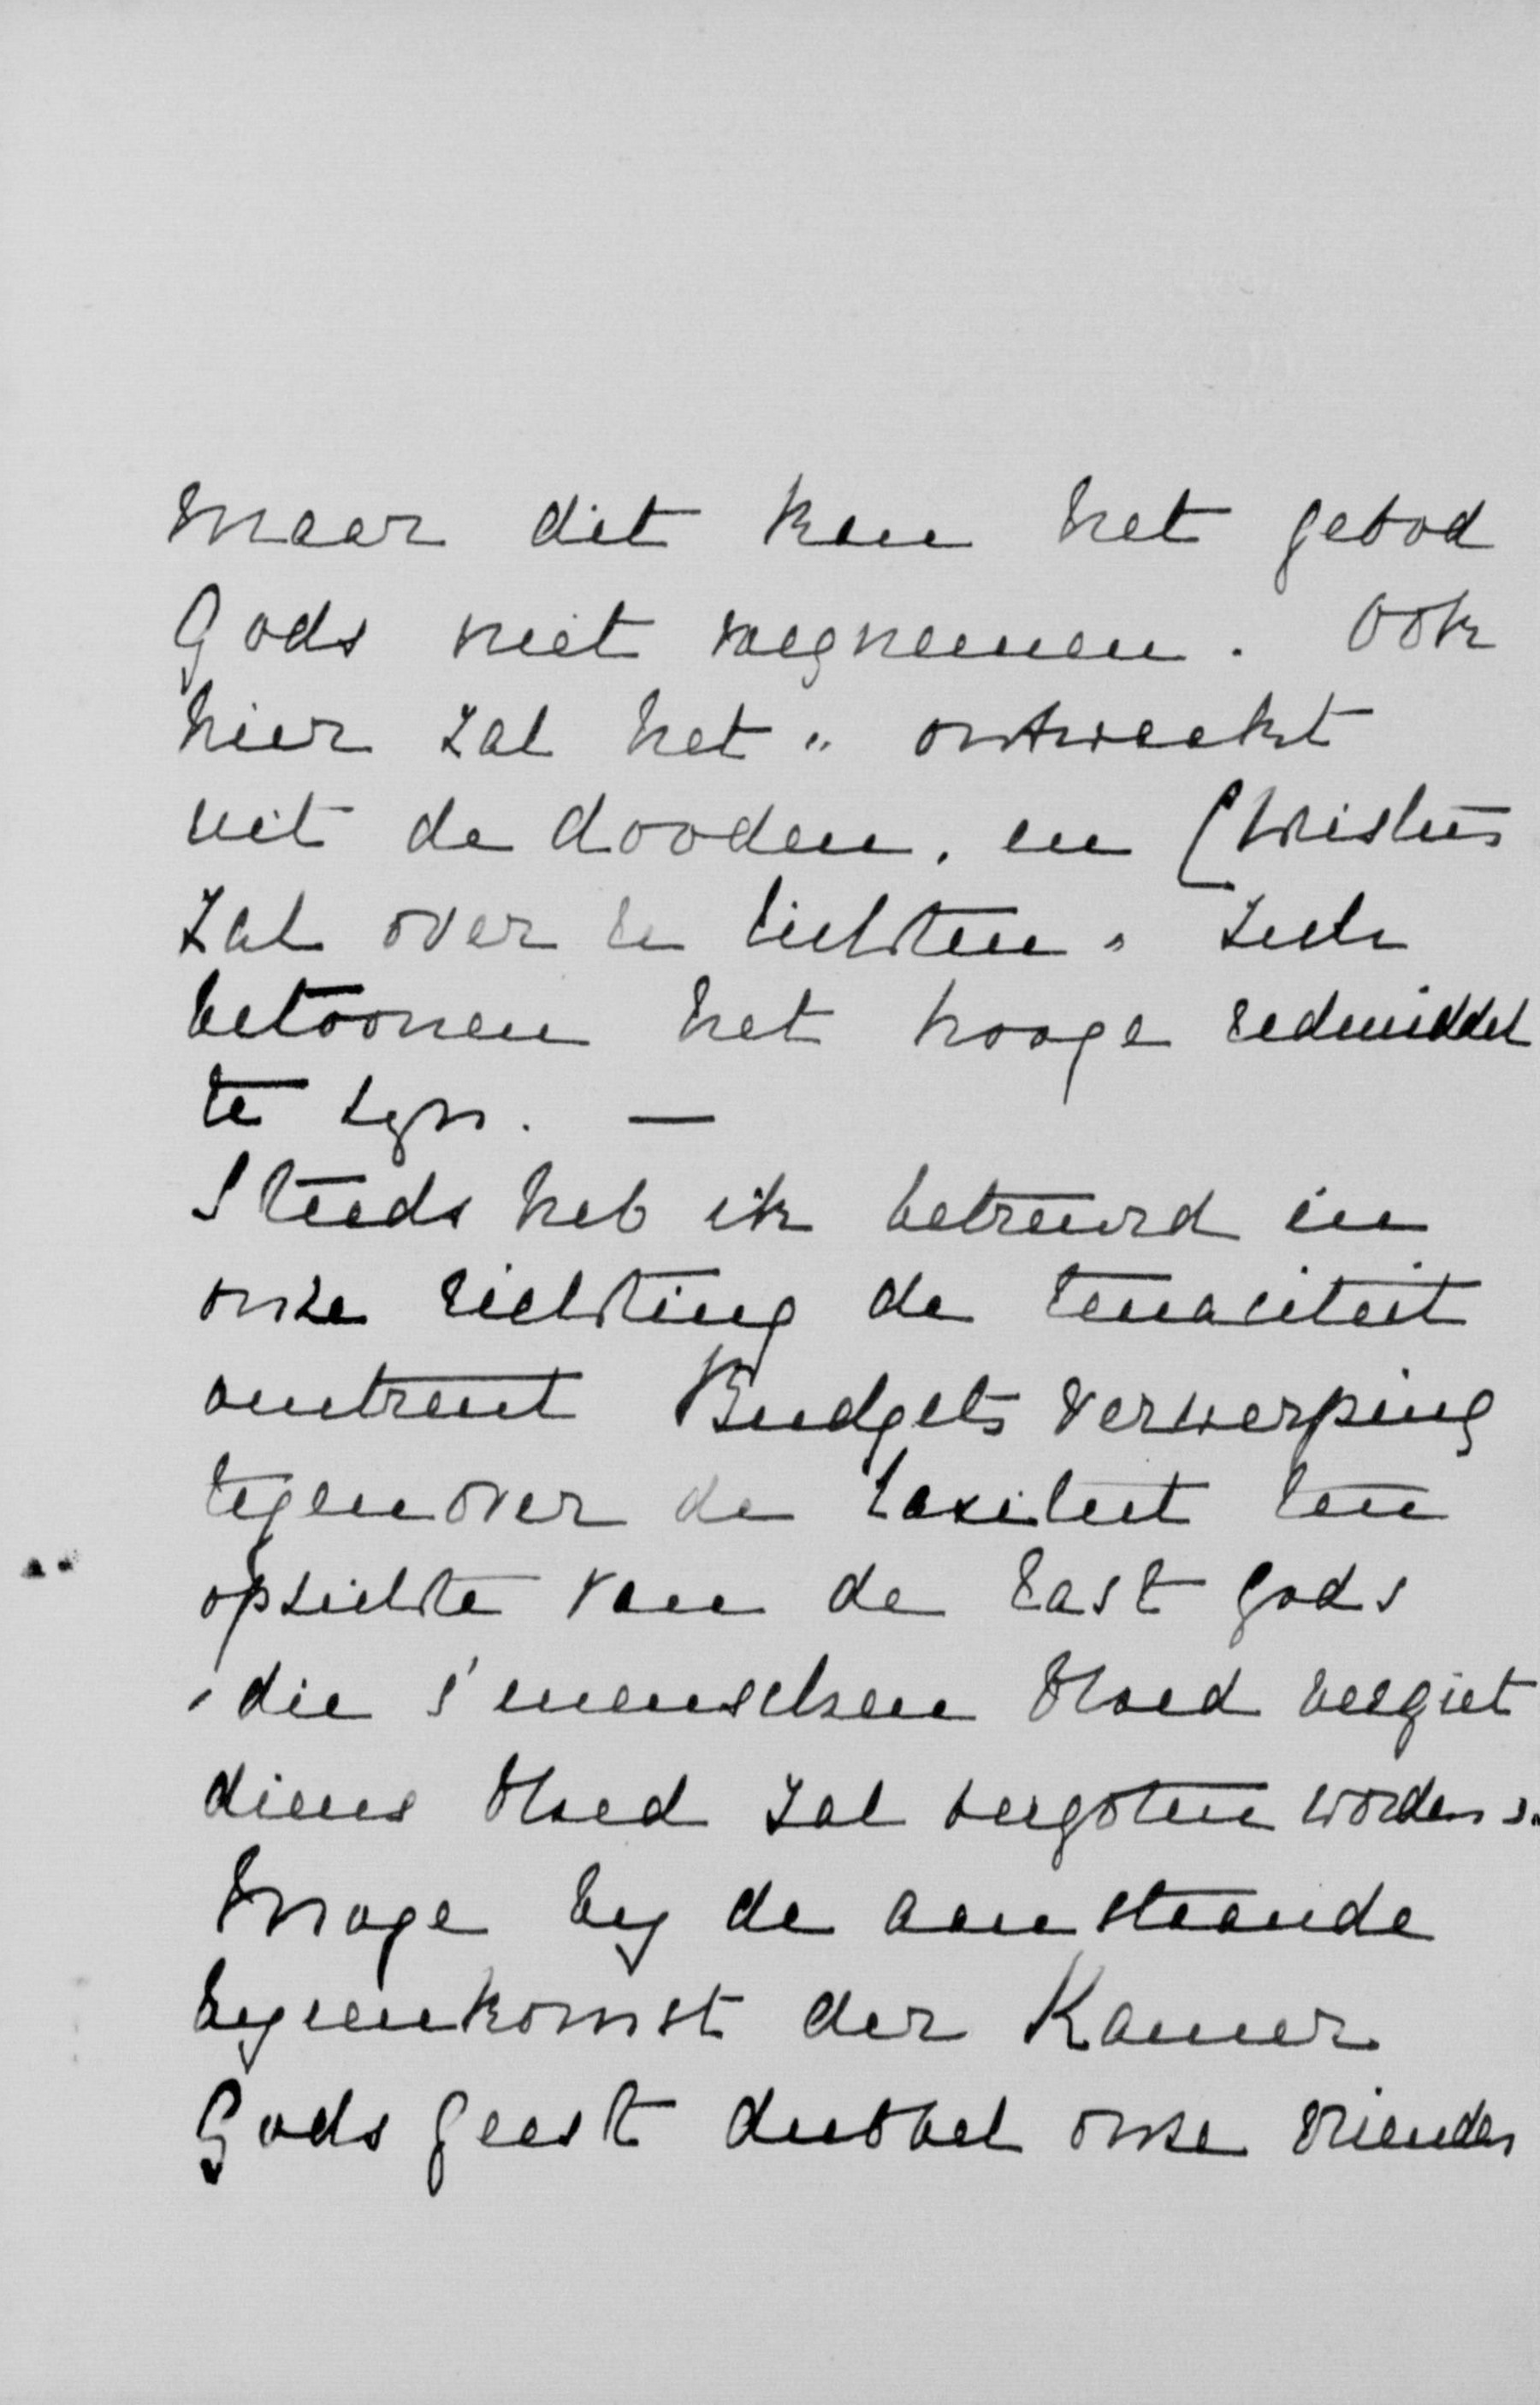 maar dit kan het gebod
Gods niet wegnemen. Ook
hier zal het „ ontwaakt
uit de dooden, en Christus
zal over u lichten " zich
betoonen het hooge redmiddel
te zyn. —
Steeds heb ik betreurd in
onze richting de tenaciteit
omtrent Budgets verwerping
tegenover de laxiteit ten
opzichte van de last Gods
, die s'menschen bloed vergiet
diens bloed zal vergoten worden ".
Moge by de aanstaande
byeenkomst der Kamer
Gods geest dubbel onze vrienden